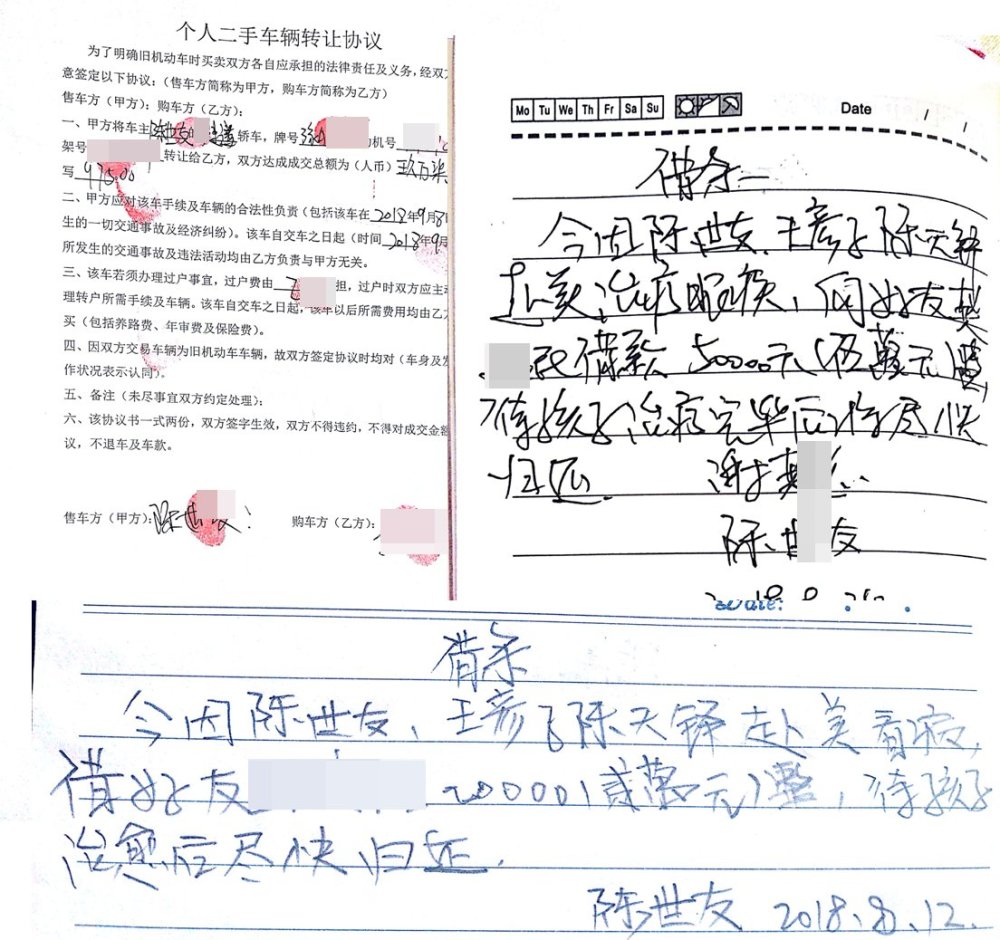 个人二手车辆转让协议
为了明确旧机动车时买卖双方各自应承担的法律责任及义务，经双方
意签定以下协议：（售车方简称为甲方，购车方简称为乙方）
售车方（甲方）：购车方（乙方）：
一、甲方将车主陈世友的 轿车，牌号 机号
架号 转让给乙方，双方达成成交总额为（人币）
写
二、甲方应对该车手续及车辆的合法性负责（包括该车在 2018年9月8
生的一切交通事故及经济纠纷）。该车自交车之日起（时间 2018年9月
所发生的交通事故及违法活动均由乙方负责与甲方无关。
三、该车若须办理过户事宜，过户费由 担，过户时双方应主动
理转户所需手续及车辆。该车自交车之日起，该车以后所需费用均由乙方
买（包括养路费、年审费及保险费）。
四、因双方交易车辆为旧机动车车辆，故双方签定协议时均对（车身及发
作状况表示认同）。
五、备注（未尽事宜双方约定处理）；
六、该协议书一式两份，双方签字生效，双方不得违约，不得对成交金额
议，不退车及车款。
售车方（甲方）：陈世友
购车方（乙方）：
Mo Tu We Th Fr Sa Su
Date / /
借条
今因陈世友、王彦之子陈天铎
赴美治疗眼疾，向好友樊
民借款50000元（伍萬元）整
待孩子治疗完毕后将尽快
归还. 谢樊
陈世友
Date:
借条
今因陈世友、王彦子陈天铎赴美看病，
借好友 20000（贰萬元）整，待孩子
治愈后尽快归还.
陈世友 2018.8.12.